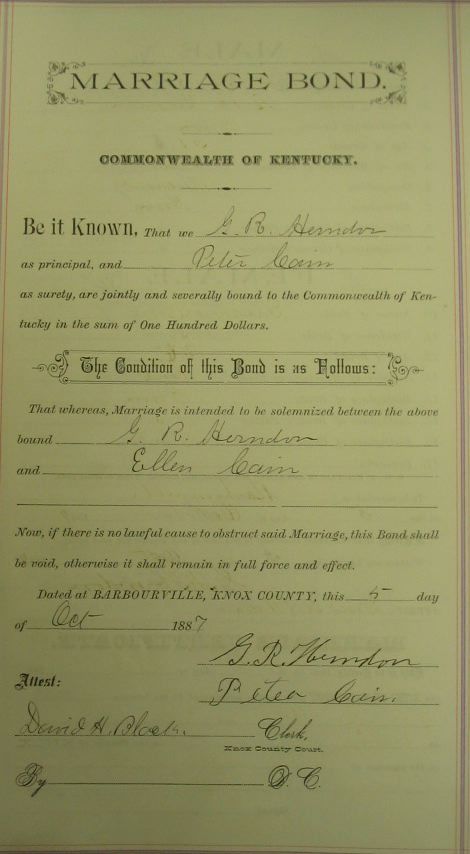 MARRIAGE BOND.
COMMONWEALTH OF KENTUCKY.
Be it Known, That we G. R. Herndon
as principal, and Peter Cain
as surety, are jointly and severally bound to the Commonwealth of Ken-
tucky in the sum of One Hundred Dollars.
The Condition of this Bond is as Follows:
That whereas, Marriage is intended to be solemnized between the above
bound G. R. Herndon
and Ellen Cain
Now, if there is no lawful cause to obstruct said Marriage, this Bond shall
be void, otherwise it shall remain in full force and effect.
Dated at BARBOURVILLE, KNOX COUNTY, this 5 day
of Oct 1887
G. R. Herndon
Attest:
Peter Cain
David H. Clerk,
Knox County Court.
By D. C.